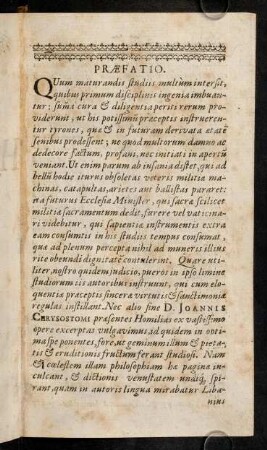 PRÆFATIO.
QUum maturandis studiis multùm intersit,
quibus primum disciplinis ingenia imbuan-
tur: sum̃a cura & diligentia periti rerum pro-
viderunt, ut his potissimũ præceptis instruerentur
tyrones, quæ & in futuram derivata etatē
senibus prodessent; ne quod multorum damno ac
dedecore factum, profani, nec initiati in aperta
veniant. Ut enim parum ab insania distet, qui ad
bellũ hodie iturus obsoletas veteris militiæ ma-
chinas, catapultas, arietes aut ballistas pararet:
ita futurus Ecclesiæ Minister, qui sacra scilicet
militia sacramentum dedit, furere vel vaticina-
ri videbitur, qui sapientia instrumentis extra
eam consumtis in his studiis tempus consumat,
quæ ad plenum percepta nihil ad muneris illius
ritè obeundi dignitatē contulerint. Quare uti-
liter, nostro quidem judicio, pueros in ipso limine
studiorum iis autoribus instruunt, qui cum elo-
quentiæ præceptis sincera virtutis & sanctimoniæ
regulas instillant. Nec alio sine D. JOANNIS
CHRYSOSTOMI præsentes Homilias ex vastissimo
opere excerptas vulgavimus, ad quidem in opti-
ma spe ponentes, fore, ut geminum illum & pieta-
tis & eruditionis fructum ferant studiosi. Nam
& cælestem illam philosophiam hæ pagina in-
culcant, & dictionis venustatem undiq; spi-
rant, quam in autoris lingua mirabatur Liba-
nius